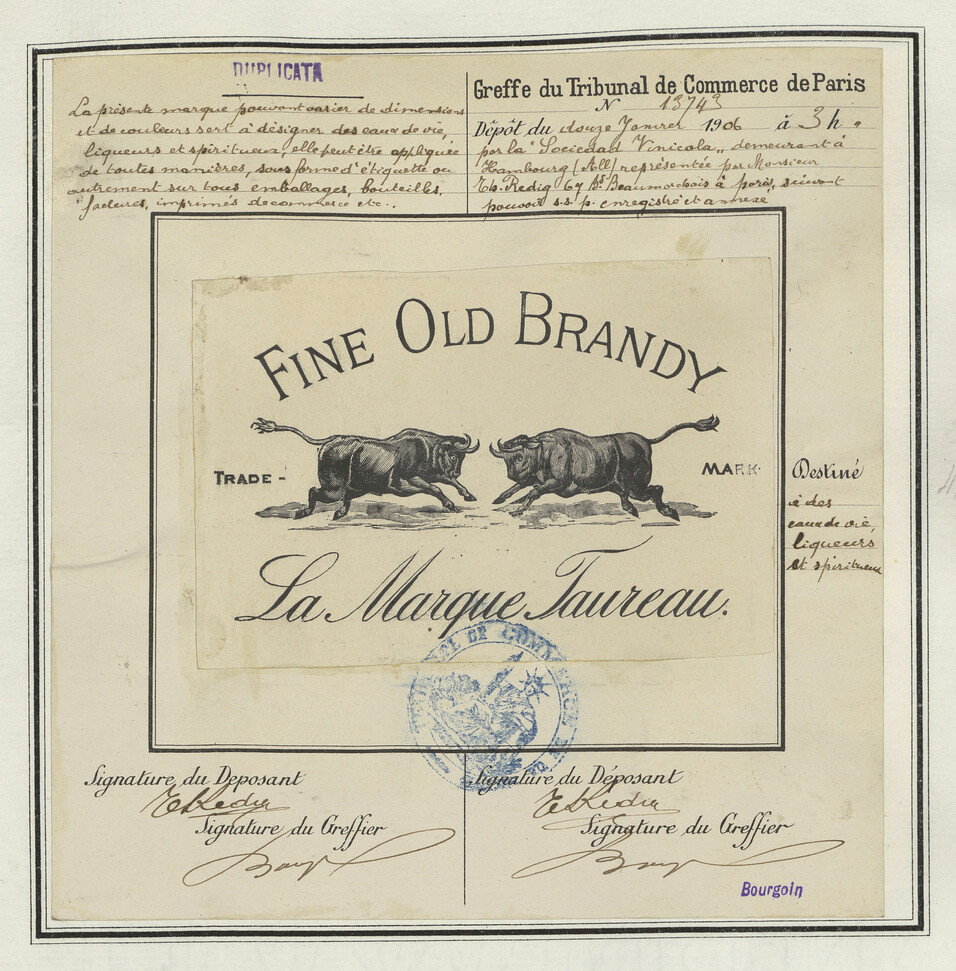 DUPLICATA
La présente marque pouvant varier de dimensions
et de couleurs sert à désigner des eaux de vie,
liqueurs et spiritueux, elle peut être appliquée
de toutes manières, sous forme d'étiquette ou
autrement sur tous emballages, bouteilles,
factures, imprimés de commerce etc..
Greffe du Tribunal de Commerce de Paris
N 13743
Dépôt du douze Janvier 1906 à 3 h "
par la "Sociedad Vinicola„ demeurant à
Hambourg (All) représentée par Monsieur
Th. Redig 67 Bd Beaumarchais à paris, suivant
pouvoir s.s.p. enregistré et annexé
FINE OLD BRANDY
TRADE - MARK
La Marque Taureau.
Destiné
à des
eaux de vie,
liqueurs
et spiritueux
TRIBUNAL DE COMMERCE DE
Signature du Deposant
Signature du Greffier
Signature du Déposant
Signature du Greffier
Bourgoin